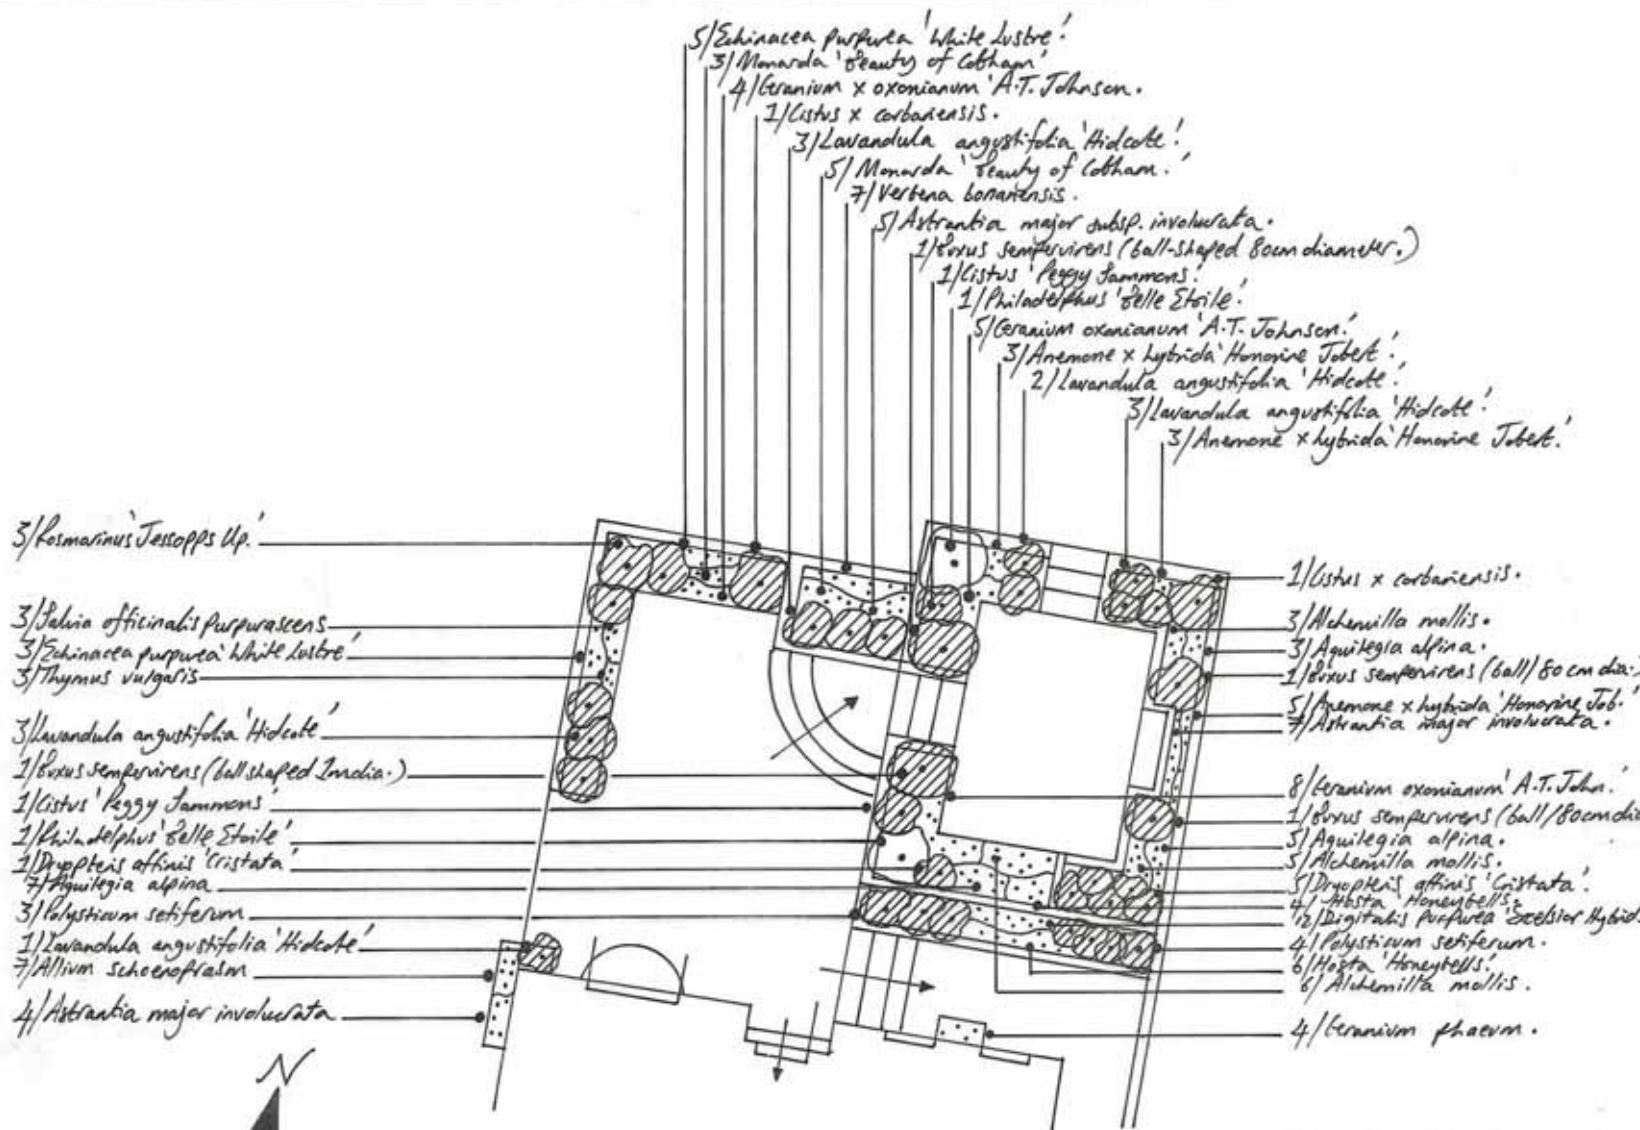 5/Echinacea purpurea 'White Lustre'.
3/Monarda 'Beauty of Cobham'
4/Geranium x oxonianum 'A.T. Johnson.
1/Cistus x corbariensis.
3/Lavandula angustifolia 'Hidcote'.
5/Monarda 'Beauty of Cobham.'
7/Verbena bonariensis.
5/Astrantia major subsp. involucrata.
1/Buxus sempervirens (ball-shaped 80cm diameter.)
1/Cistus 'Peggy Sammons'.
1/Philadelphus 'Belle Etoile'.
5/Geranium oxonianum 'A.T. Johnson'.
3/Anemone x hybrida 'Honorine Jobert'.
2/Lavandula angustifolia 'Hidcote'.
3/Lavandula angustifolia 'Hidcote'.
3/Anemone x hybrida 'Honorine Jobert.'
3/Rosmarinus 'Jessopps Up.'
3/Salvia officinalis purpurascens
3/Echinacea purpurea 'White Lustre'
3/Thymus vulgaris
3/Lavandula angustifolia 'Hidcote'
1/Buxus sempervirens (ball shaped 1m dia.)
1/Cistus 'Peggy Sammons'
1/Philadelphus 'Belle Etoile'
1/Dryopteris affinis 'Cristata'
7/Aquilegia alpina
3/Polysticum setiferum
1/Lavandula angustifolia 'Hidcote'
7/Allium schoenoprasm
4/Astrantia major involucrata
1/Cistus x corbariensis.
3/Alchemilla mollis.
3/Aquilegia alpina.
1/Buxus sempervirens (ball/80cm dia.)
5/Anemone x hybrida 'Honorine Job.'
7/Astrantia major involucrata.
8/Geranium oxonianum 'A.T. John.'
1/Buxus sempervirens (ball/80cm dia
5/Aquilegia alpina.
5/Alchemilla mollis.
5/Dryopteris affinis 'Cristata'.
4/Hosta 'Honeybells'.
12/Digitalis purpurea 'Excelsior Hybrid.
4/Polysticum setiferum.
6/Hosta 'Honeybells'.
6/Alchemilla mollis.
4/Geranium phaeum.
N